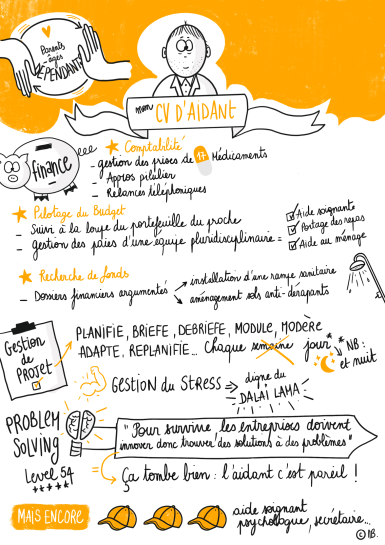 Parents
âgés
DÉPENDANTS
mon CV D'AIDANT
finance
Comptabilité
- gestion des prises de 17 Médicaments
- Appros pilulier
- Relances téléphoniques
Pilotage du Budget
- Suivi à la loupe du portefeuille du proche
- gestion des paies d'une équipe pluridisciplinaire =
Aide soignante
Portage des repas
Aide au ménage
Recherche de fonds
- Dossiers financiers argumentés
installation d'une rampe sanitaire
aménagement sols anti-dérapants
Gestion
de
PROJET
PLANIFIE, BRIEFE, DEBRIEFE, MODULE, MODÈRE
ADAPTE, REPLANIFIE... Chaque semaine jour*
*NB:
et nuit
GESTION du STRESS
digne du
DALAÏ LAMA
PROBLEM
SOLVING
Level 54
"Pour survivre les entreprises doivent
innover donc trouver des solutions à des problèmes"
= Ça tombe bien : l'aidant c'est pareil !
MAIS ENCORE
aide soignant
psychologue, secrétaire...
© IB.